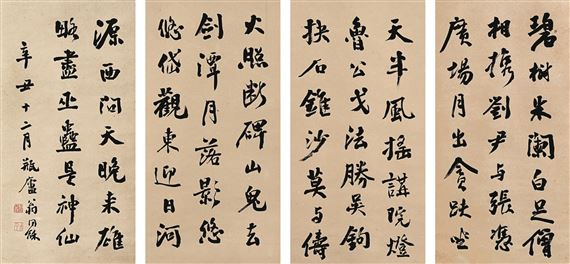 碧樹朱闌白足僧
相携劉尹與張憑
廣場月出貪趺坐
天半風搖講院燈
魯公戈法勝吳鉤
抉石錐沙莫与儔
火照斷碑山鬼去
劍潭月落影悠
悠岱觀東迎日河
源西問天晚来雄
略盡巫蠱是神仙
辛丑十二月瓶廬翁同龢